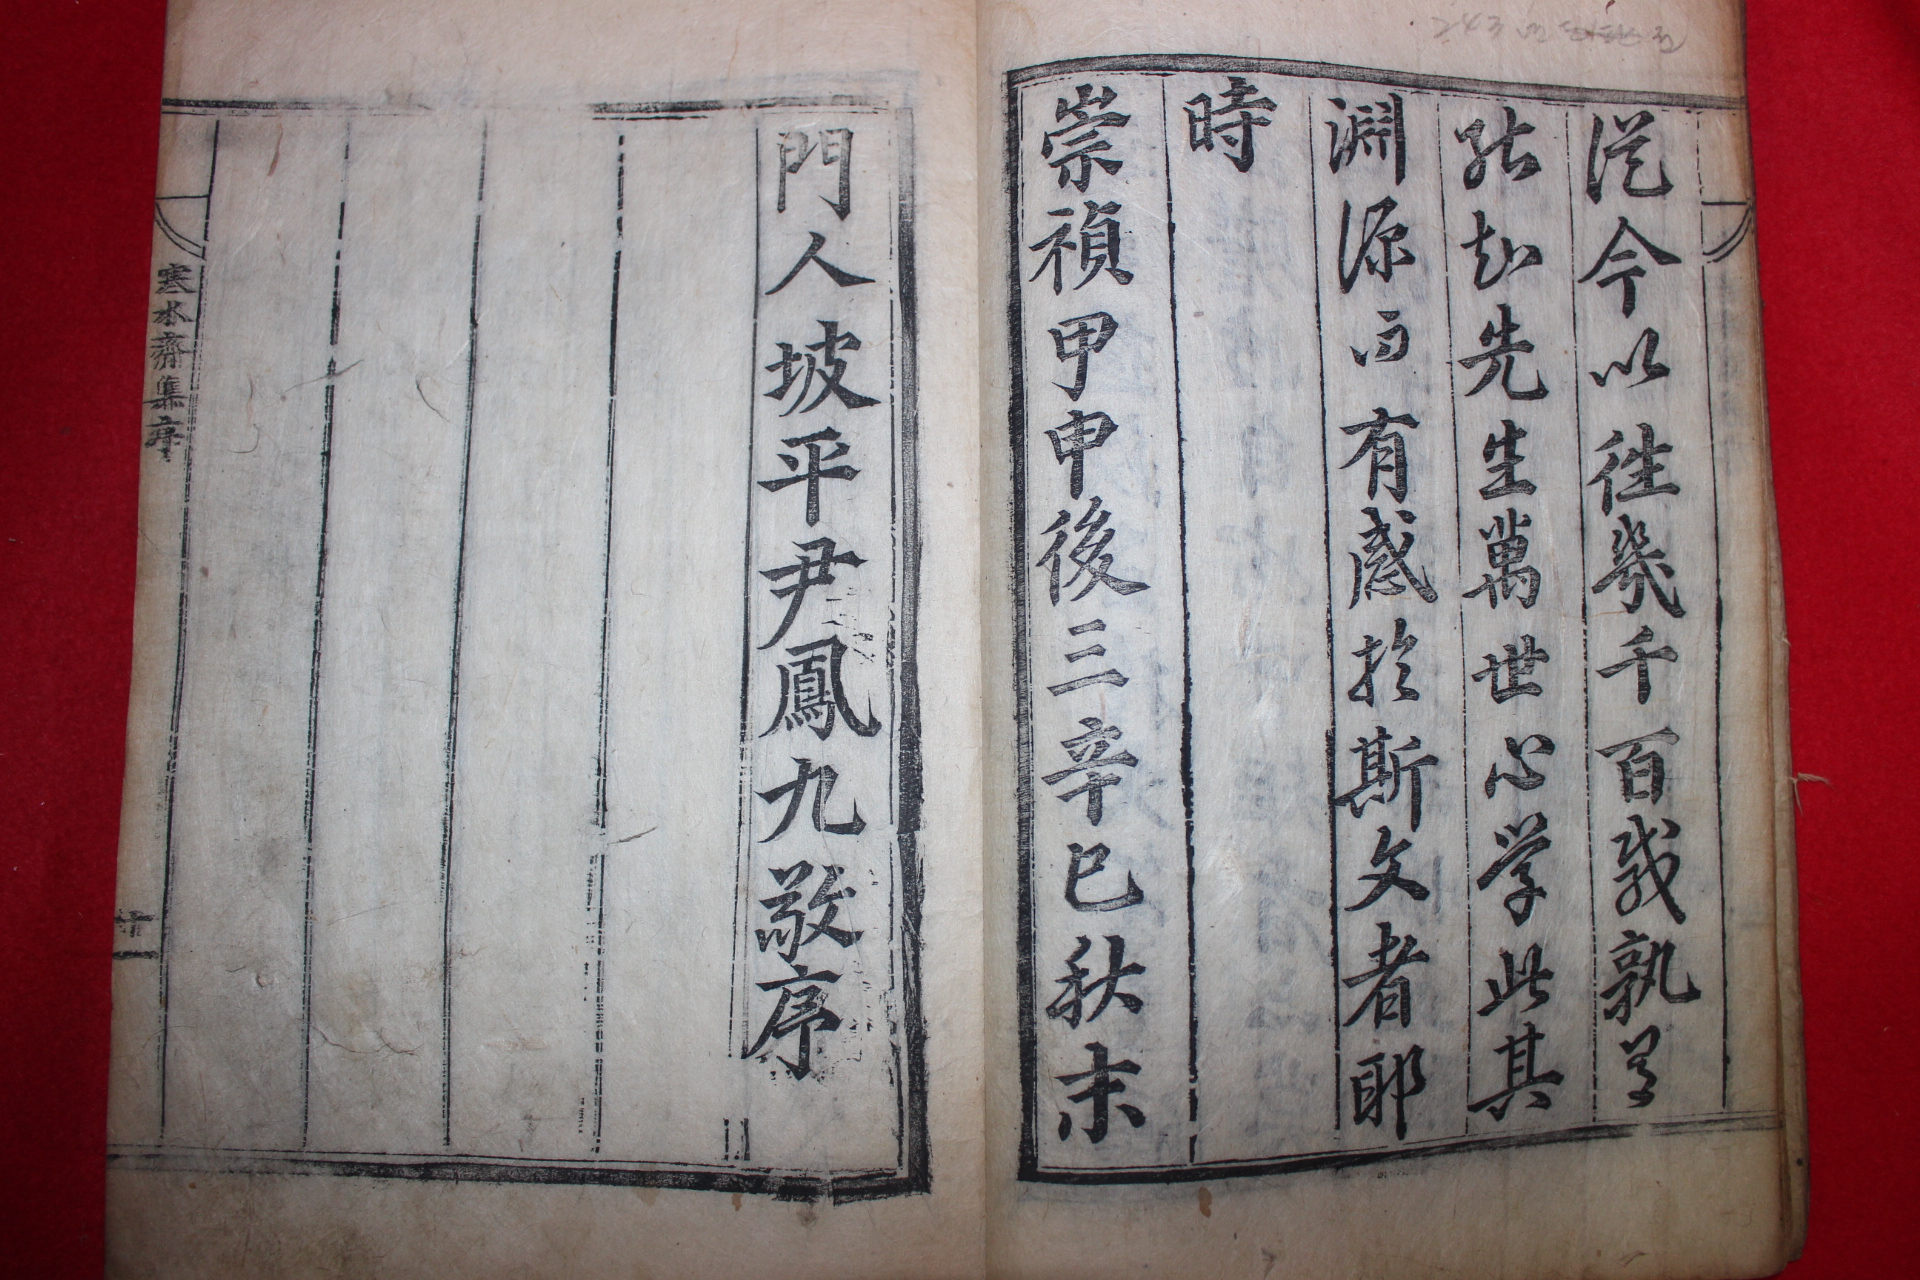 從今以徃幾千百載孰是
能知先生萬世心學此其
淵源而有感於斯文者耶
時
崇禎甲申後三辛巳秋末
門人坡平尹鳳九敬序
寒水齋集序
廿一